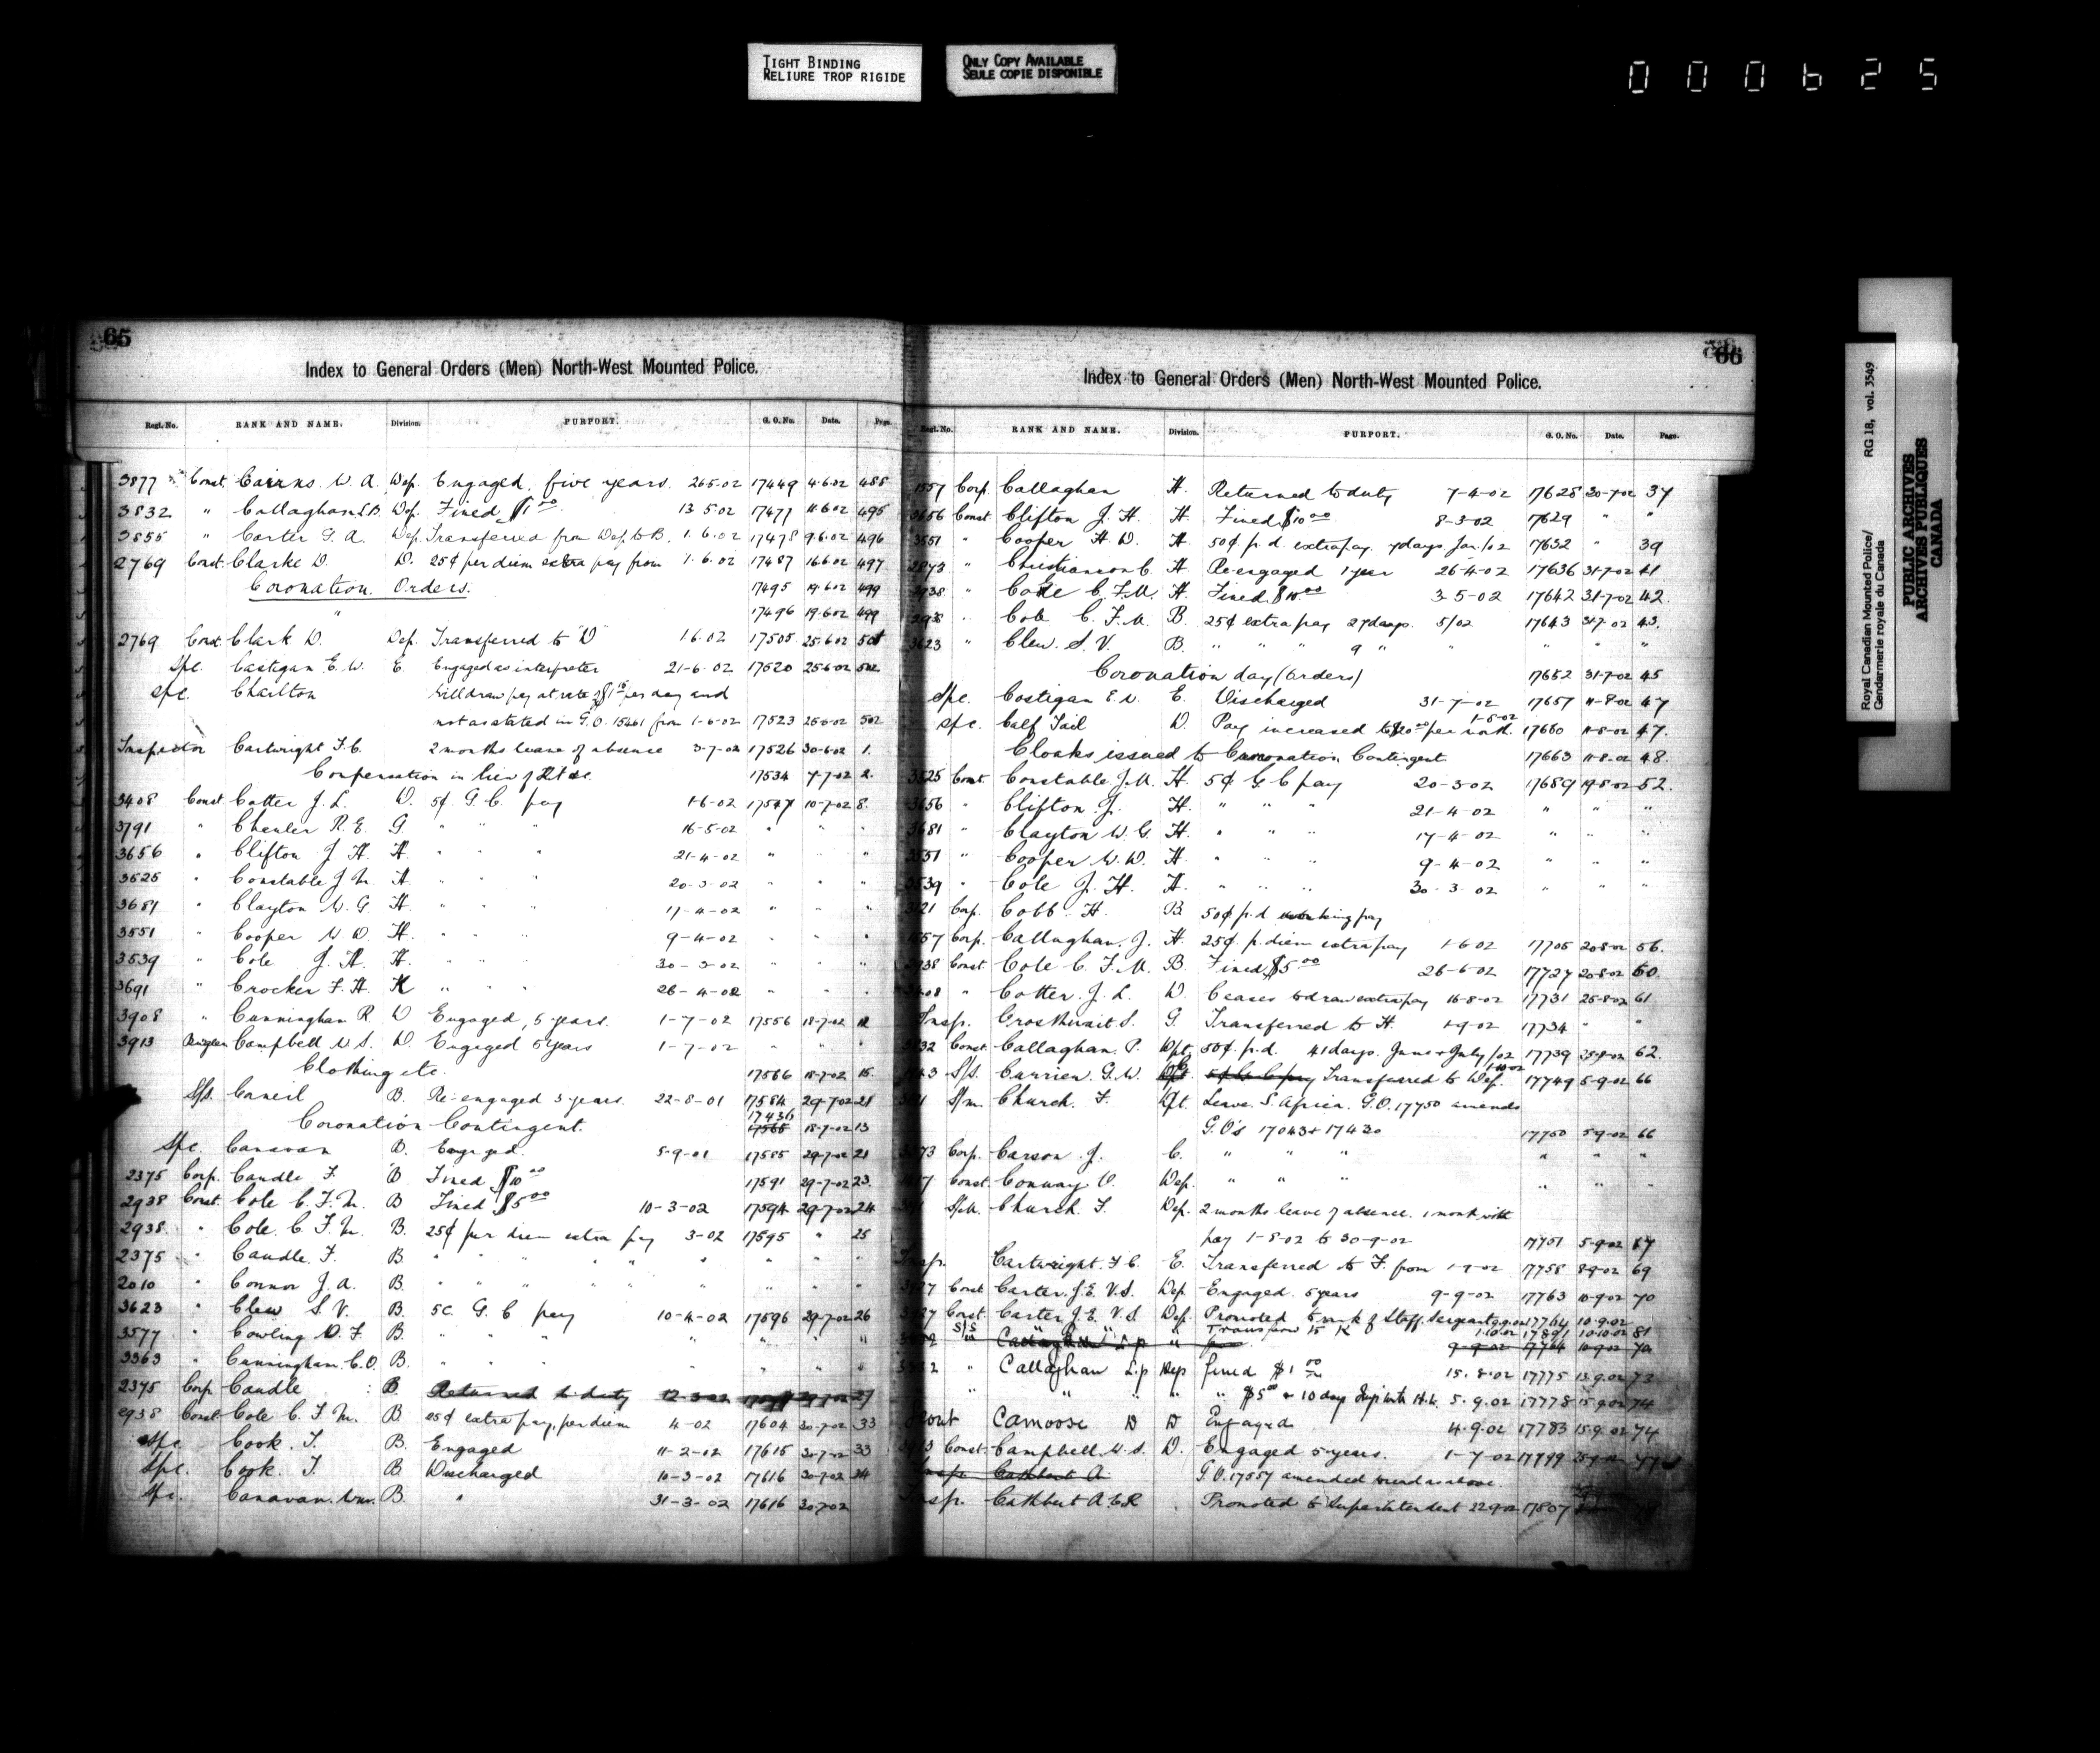 TIGHT BINDING
RELIURE TROP RIGIDE
ONLY COPY AVAILABLE
SEULE COPIE DISPONIBLE
000625
65
Index to General Orders (Men) North-West Mounted Police.
Regl. No. RANK AND NAME. Division. PURPORT. G. O. No. Date. Page.
3877 Const. Cairns W. A. Dep. Engaged five years. 26.5.02 17449 4-6-02 488
3832 " Callaghan L.P. Dep. Fined $1.00 13-5-02 17477 11-6-02 495
3855 " Carter G. A. Dep. Transferred from Dep. to B. 1.6.02 17478 9.6.02 496
2769 Const. Clarke D. D. 25¢ per diem extra pay from 1-6-02 17487 16.6.02 497
Coronation Orders. 17495 19.6.02 499
" 17496 19.6.02 499
2769 Const Clark D. Dep. Transferred to "D" 1.6.02 17505 25.6.02 501
Spc. Castigan E. W. E. Engaged as interpreter 21-6-02 17520 25.6.02 502
Spc. Charlton Will draw pay at rate of $1 per day and
not as stated in G.O. 15461 from 1-6-02 17523 25-6-02 502
Inspector Cartwright F. C. 2 months leave of absence 3-7-02 17526 30-6-02 1.
Compensation in lieu of Kit &c. 17534 7-7-02 2.
3408 Const Cotter J. L. D. 5¢ G. C. pay 1-6-02 17547 10-7-02 8.
3791 " R. E. G " " " 16-5-02 " " "
3656 " Clifton J. H. H. " " " 21-4-02 " " "
3525 " Constable J. M. H " " " 20-3-02 " " "
3681 " Clayton W. G H. " " " 17-4-02 " " "
3551 " Cooper W. D. H. " " " 9-4-02 " " "
3539 " Cole J. H. H. " " " 30-3-02 " " "
3691 " Crocker F. H. K " " " 26-4-02 " " "
3908 " Cunningham R D Engaged, 5 years. 1-7-02 17556 18-7-02 12
3913 Bugler Campbell W. S. D. Engaged 5 years 1-7-02 " " "
Clothing etc. 17566 18-7-02 15.
S/S. Coneil B. Re-engaged 3 years. 22-8-01 17584 29-7-02 21
Coronation Contingent. 17436 17565 18-7-02 13
Spc. Canavan B. Engaged. 5-9-01 17585 29-7-02 21
2375 Corp. Caudle F. B Fined $10.00 17591 29-7-02 23.
2938 Const. Cole C. F. M. B Fined $5.00 10-3-02 17594 29-7-02 24
2938 " Cole C. F. M. B. 25¢ per diem extra pay 3-02 17595 " 25
2375 " Caudle. F. B. " " " " " " "
2010 " Connor J. A. B. " " " " " " "
3623 " Clew S. V. B. 5c. G. C pay 10-4-02 17596 29-7-02 26
3577 " Cowling D. F. B. " " " " " "
3363 " Cunningham. C. O. B. " " " " " "
2375 Corp Caudle B. Returned to duty 12-3-02 29-7-02 27
2938 Const Cole C. F. M. B 25¢ extra pay, per diem 4-02 17604 30-7-02 33
Spc. Cook. T. B. Engaged 11-2-02 17615 30-7-02 33
Spc. Cook. T. B Discharged 10-3-02 17616 30-7-02 34
Spc. Canavan. Wm. B. " 31-3-02 17616 30-7-02
66
Index to General Orders (Men) North-West Mounted Police.
Regl. No. RANK AND NAME. Division. PURPORT. G. O. No. Date. Page.
1557 Corp. Callaghan H. Returned to duty 7-4-02 17628 30-7-02 37
3656 Const. Clifton J. H. H. Fined $10.00 8-3-02 17629 " "
3551 " Cooper H. W. H 50¢ p. d. extra pay. 7 days Jan./02 17632 " 39
" Christianson C. H Re-engaged 1 year 26-4-02 17636 31-7-02 41
2938 " Cole C. F. M. H. Fined $10.00 3-5-02 17642 31-7-02 42.
2938 " Cole C. F. M. B. 25¢ extra pay 27 days. 5/02 17643 31-7-02 43.
3623 " Clew. S. V. B. " " " 9 " " " " "
Coronation day (Orders) 17652 31-7-02 45
Spc. Costigan E. W. E. Discharged 31-7-02 17657 11-8-02 47
Spc. Calf Tail D. Pay increased to $20.00 per mth. 17660 11-8-02 47.
Cloaks issued to Coronation Contingent 17663 11-8-02 48.
3525 Const. Constable J. M. H. 5¢ G. C pay 20-3-02 17689 19-8-02 52.
3656 " Clifton J. H. " " " 21-4-02 " " "
3681 " Clayton W. G H. " " " 17-4-02 " " "
3551 " Cooper W. D. H. " " " 9-4-02 " " "
3539 " Cole J. H. H. " " " 30-3-02 " " "
Corp. Cobb. H. B. 50¢ p. d pay
1557 Corp. Callaghan. J. H. 25¢ p. diem extra pay 1-6-02 17705 20-8-02 56.
2938 Const Cole C. F. M. B. Fined $5.00 26-6-02 17727 20-8-02 60.
3408 " Cotter. J. L. D. Ceases to draw extra pay 16-8-02 17731 25-8-02 61
Insp. Crosthwait. S. G. Transferred to H. 1-9-02 17734 " "
Const. Callaghan. P. Dpt. 50¢ p. d. 41 days. June & July/02 17739 25-8-02 62.
S/S. Currier. G. W. Transferred to Dep. 17749 5-9-02 66
S/m. Church. F. Dpt. Leave. S. Africa. G.O. 17750 amends
G.O's 17043 & 17430 17750 5-9-02 66
Corp. Carson. J. C. " " " " " "
Const Conway. O. Dep. " " " " " "
S/M. Church. F. Dep. 2 months leave of absence. 1 month with
pay 1-8-02 to 30-9-02 17751 5-9-02 67
Insp. Cartwright. F. C. E. Transferred to F. from 1-9-02 17758 8-9-02 69
Const Carter. J. E. V. S. Dep. Engaged. 5 years 9-9-02 17763 10-9-02 70
Const. Carter J. E. V. S Dep. Promoted to rank of Staff Sergeant 9.9.02 17764 10-9-02
S/S " " " Trans from to K 1.10.02 17891 10.10.02 81
Callaghan L. P " 9-9-02 17764 10-9-02 70
" Callaghan L.P Dep fined $1.00 15.8.02 17775 13.9.02 73
" " " " " $5.00 & 10 days Imp with H.L. 5.9.02 17778 15.9.02 74
Scout Camoose D D Engaged 4.9.02 17783 15.9.02 74
3913 Const. Campbell W. S. D. Engaged 5 years. 1-7-02 17799
Insp. Cuthbert A. G.O. 17557 amended to read as above.
Insp. Cuthbert A. E. R Promoted to Superintendent 22.9.02 17807
Royal Canadian Mounted Police/ RG 18, vol. 3549
Gendarmerie royale du Canada
PUBLIC ARCHIVES
ARCHIVES PUBLIQUES
CANADA